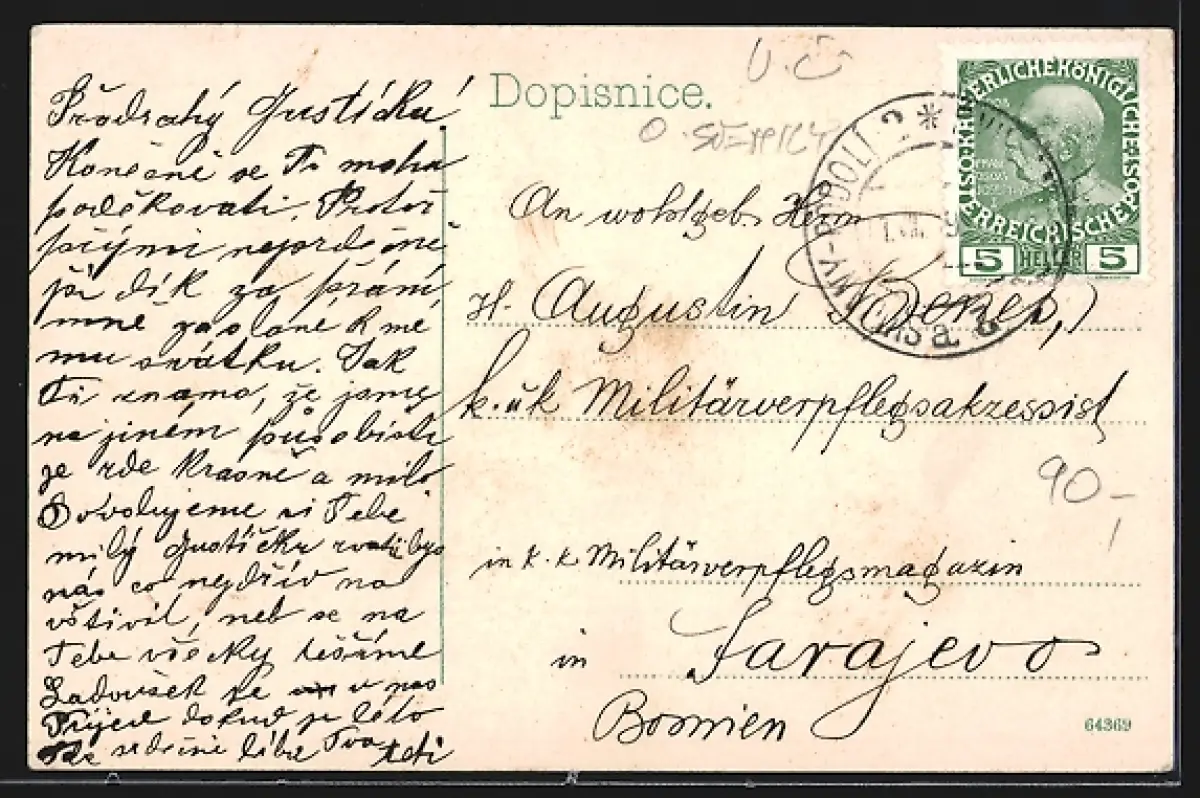 Dopisnice.
Předrahý Gustíčku!
Konečně se Ti mohu
poděkovati. Protož
přijmi nejsrdečně
jší dík za přání,
mně zaslané k mé
mu svátku. Jak
Ti známo, že jsme
na jiném působišti
je zde krásně a milo
Dovolujeme si Tebe
milý Gustíčku zvati bys
nás co nejdřív na
vštivil, neb se na
Tebe všecky těšíme
Ladoušek je u nás
Přijeď dokud je léto
srdečně líbá Tvá teti
U.Č
O. SEMILY
An wohlgeb. Herrn
H. Augustin Beneš,
k. u k Militärverpflegsakzessist
in k. k Militärverpflegsmagazin
in Sarajevo
Bosnien
90-
64369
KAISERLICHE KÖNIGLICHE ÖSTERREICHISCHE POST
5 HELLER 5